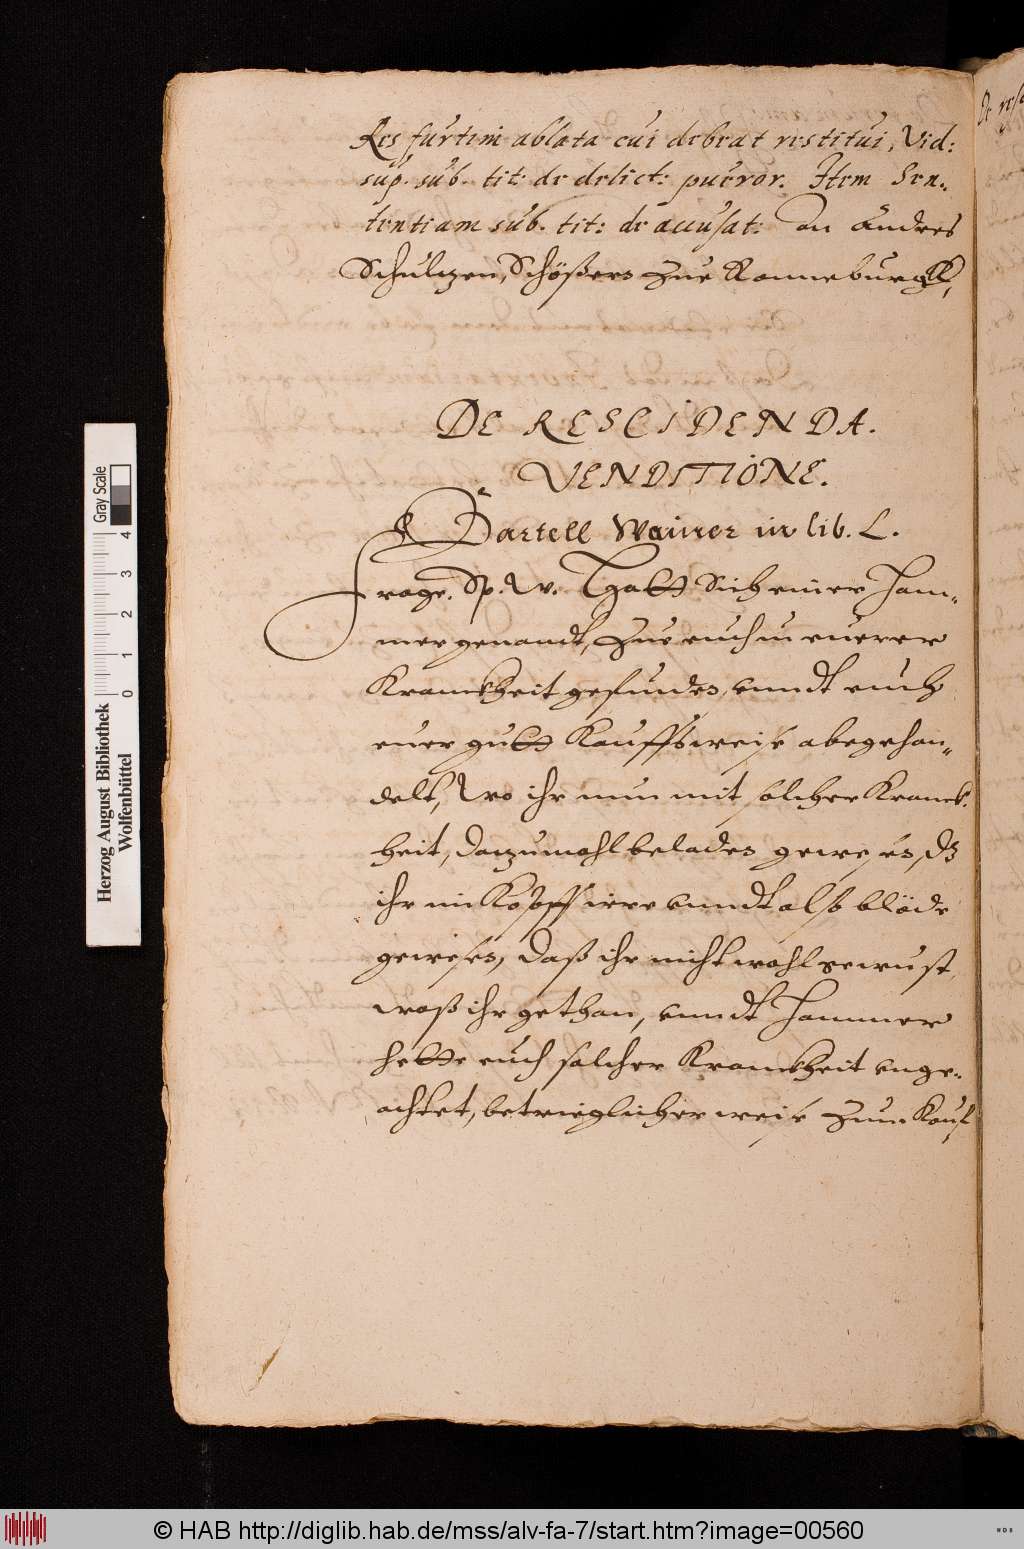 Res furtim ablata cui debeat restitui, Vid:
sup. sub. tit: de delict: pueror. Item Sen„
tentiam sub. tit: de accusat: an Andres
Schultzen, Schößers zue Ronneburgk,
DE RESCIDENDA.
VENDITIONE.
Bartell Weiner in lib. L.
Frage. Sp. W. Hatt sich einer Ham„
mer genandt, zue euch in euerer
Kranckheit gefunden, vnndt euch
euer gutt Kauffsweise abegehan„
delt, Wo ihr nun mit solcher Kranck„
heit, dazumahl beladen gewesen, dz
ihr im Kopff irre vnndt also blöde
gewesen, daß ihr nicht wohl gewust,
waß ihr gethan, vnndt Hammer
hette euch solcher Kranckheit vnge„
achtet, betrieglicher weise zum Kauf
De resc
Herzog August Bibliothek
Wolfenbüttel
0 1 2 3 4
Gray Scale
© HAB http://diglib.hab.de/mss/alv-fa-7/start.htm?image=00560